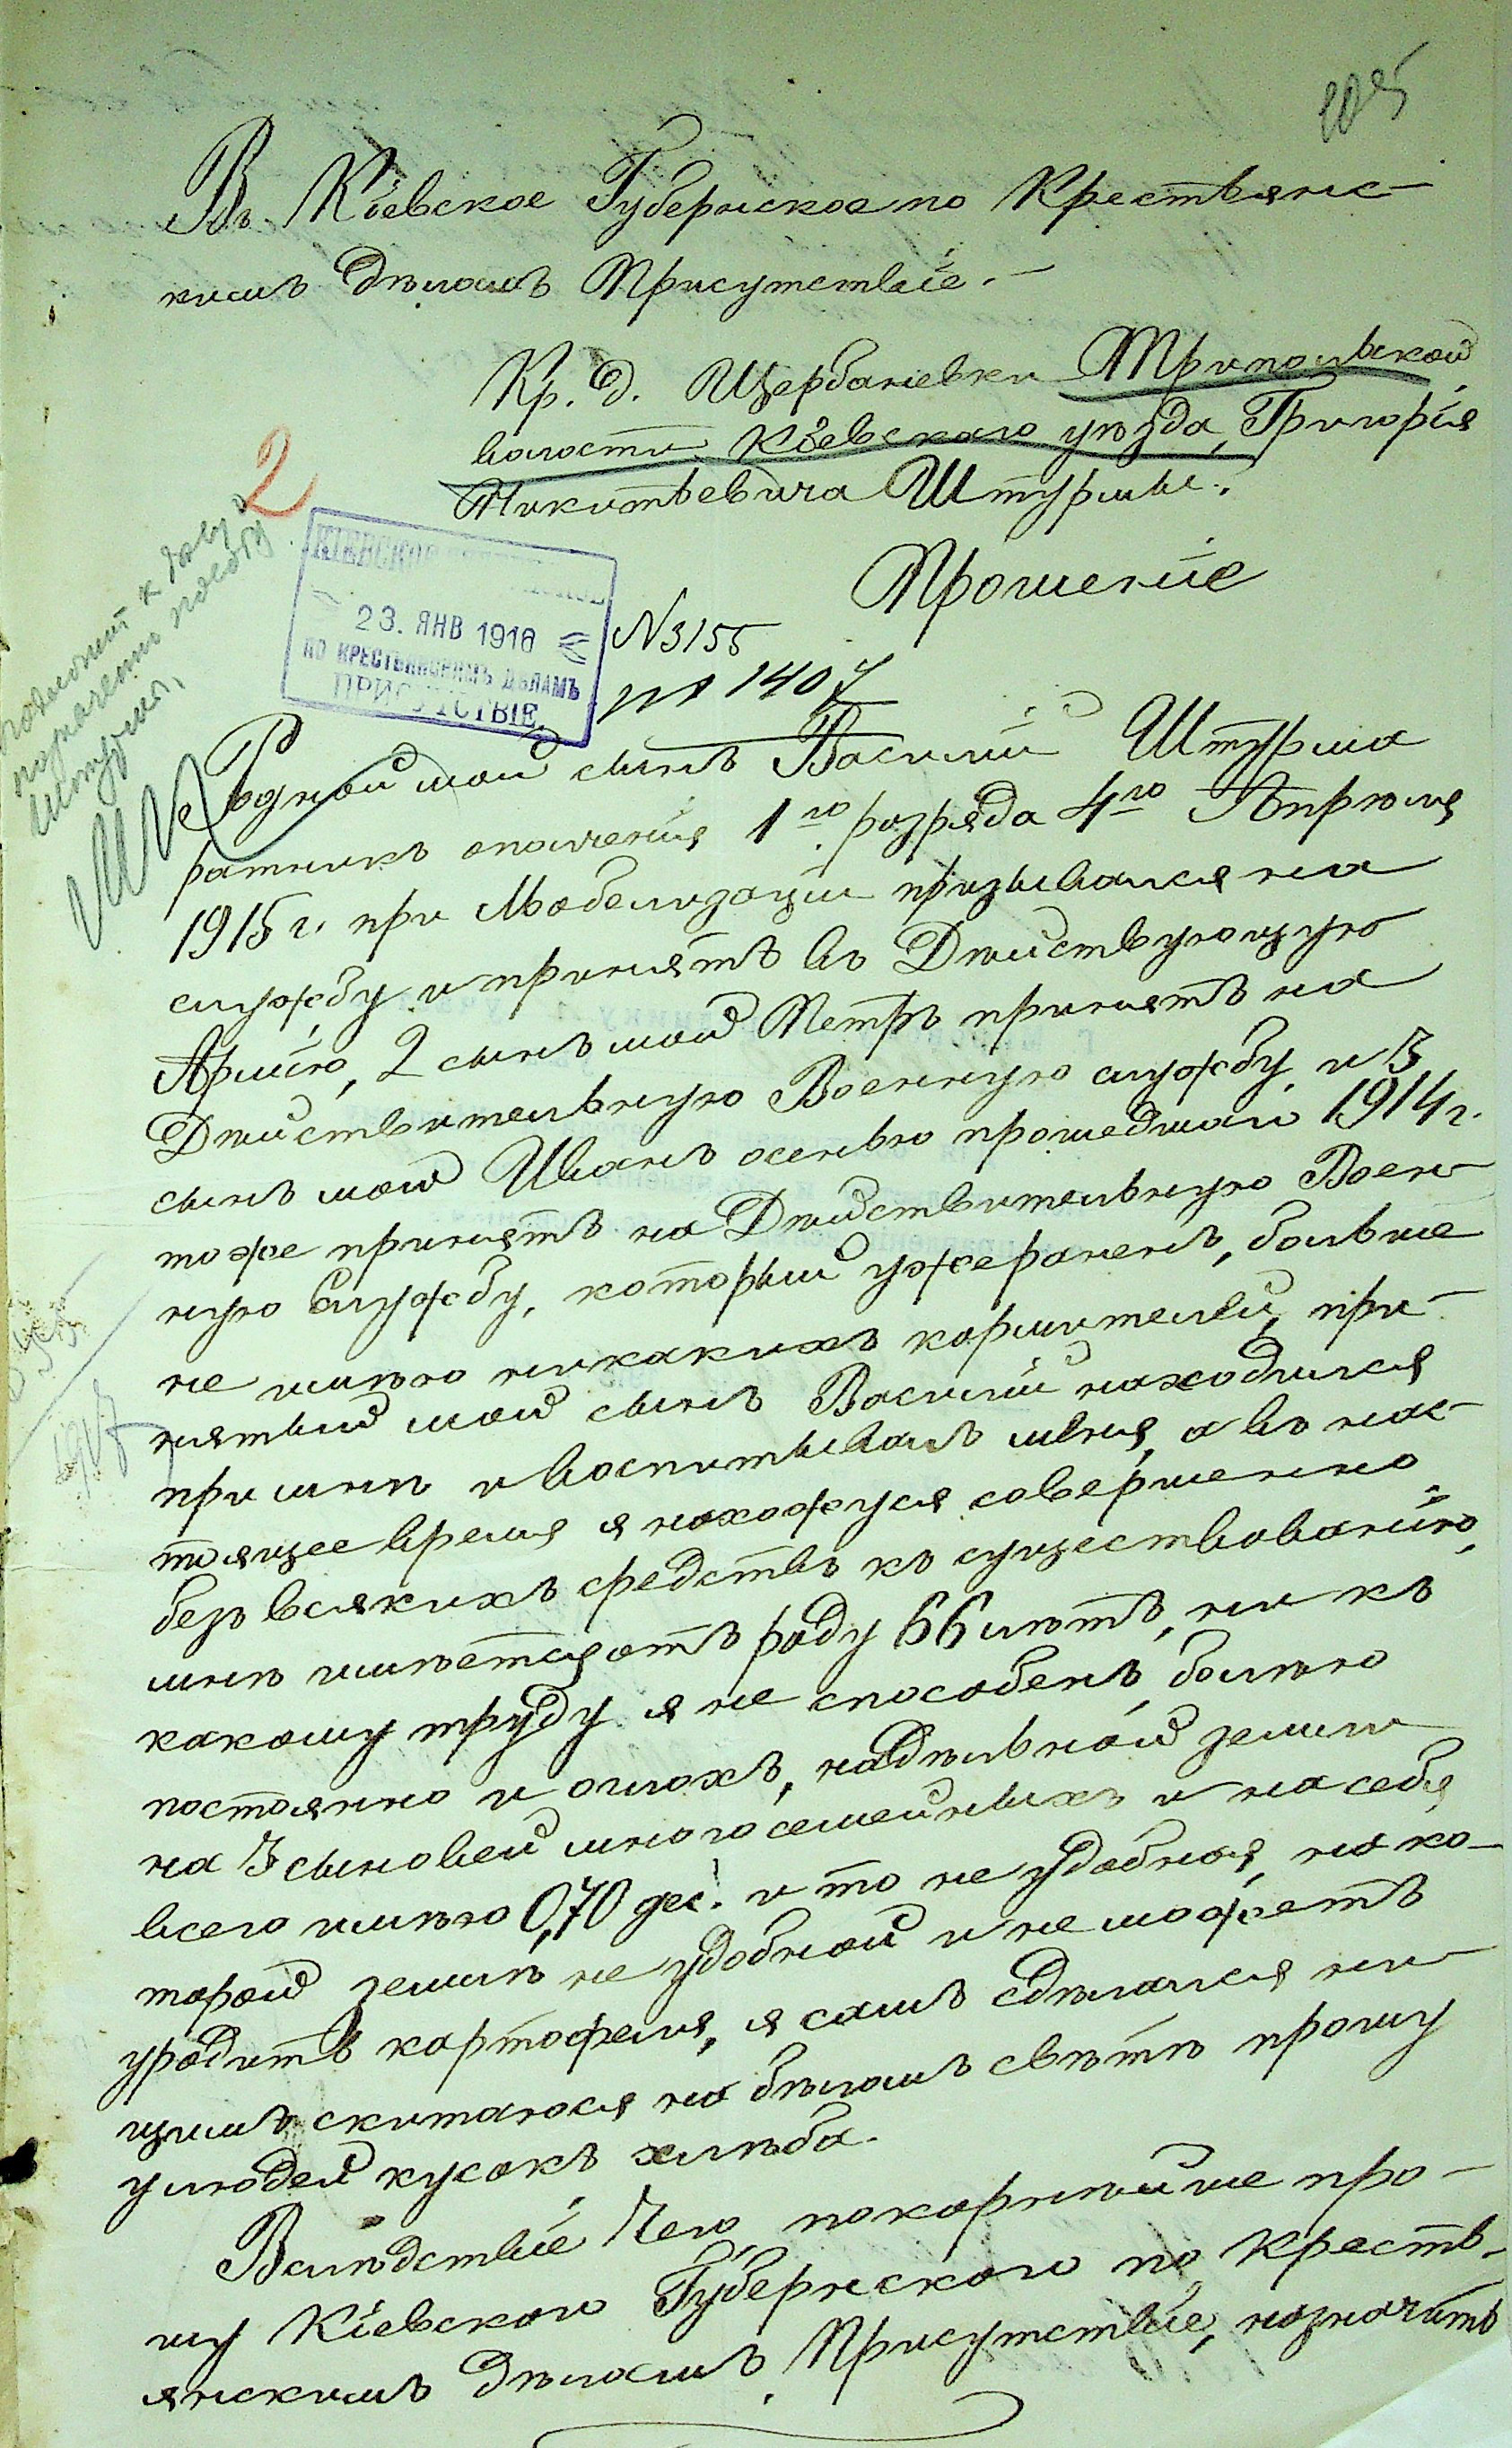 105
Въ Кіевское Губернское по Крестьянс-
кимъ Дѣламъ Присутствіе.-
Кр. д. Щербаневки Трипольской
волости Кіевскаго уѣзда, Григорія
Никитьевича Штурмы.
2
Прошеніе
КІЕВСКОЕ
23. ЯНВ 1916
ПО КРЕСТЬЯНСКИМЪ ДѢЛАМЪ
ПРИСУТСТВІЕ.
N3155
1407
Родной мой сынъ Василій Штурма
ратникъ ополченія 1го разряда 4го Апрюля
1915 г. при Мобелизаціи призывался на
службу и принятъ въ Дѣйствующую
Армію, 2 сынъ мой Петръ принятъ на
Дѣйствительную Военную службу, и 3
сынъ мой Иванъ осенью прошедшаго 1914 г.
тоже принятъ на Дѣйствительную Воен-
ную Службу, который уже раненъ, больше
не имѣю никакихъ кормителей, при-
нятый мой сынъ Василій находился
при мнѣ и воспитывалъ меня, а въ нас-
тоящее время я нахожуся совершенно
безъ всякихъ средствъ къ существованію,
мнѣ имѣется отъ роду 66 лѣтъ, ни къ
какому труду я не способенъ, болѣю
постоянно и охохъ, надѣльной земли
на 3 сыновей многосемейныхъ и на себя
всего имѣю 0,70 дес. и то не удобная, на ко-
торой землѣ не удобной и не можетъ
уродитъ картофеля, я самъ сдѣлался ни-
щимъ скитаюся на бѣломъ свѣтѣ прошу
у людей кусокъ хлѣба.
Вслѣдствіе Чего, покорнѣйше про-
шу Кіевского Губернского по Кресть-
янскимъ Дѣламъ Присутствіе, назначить